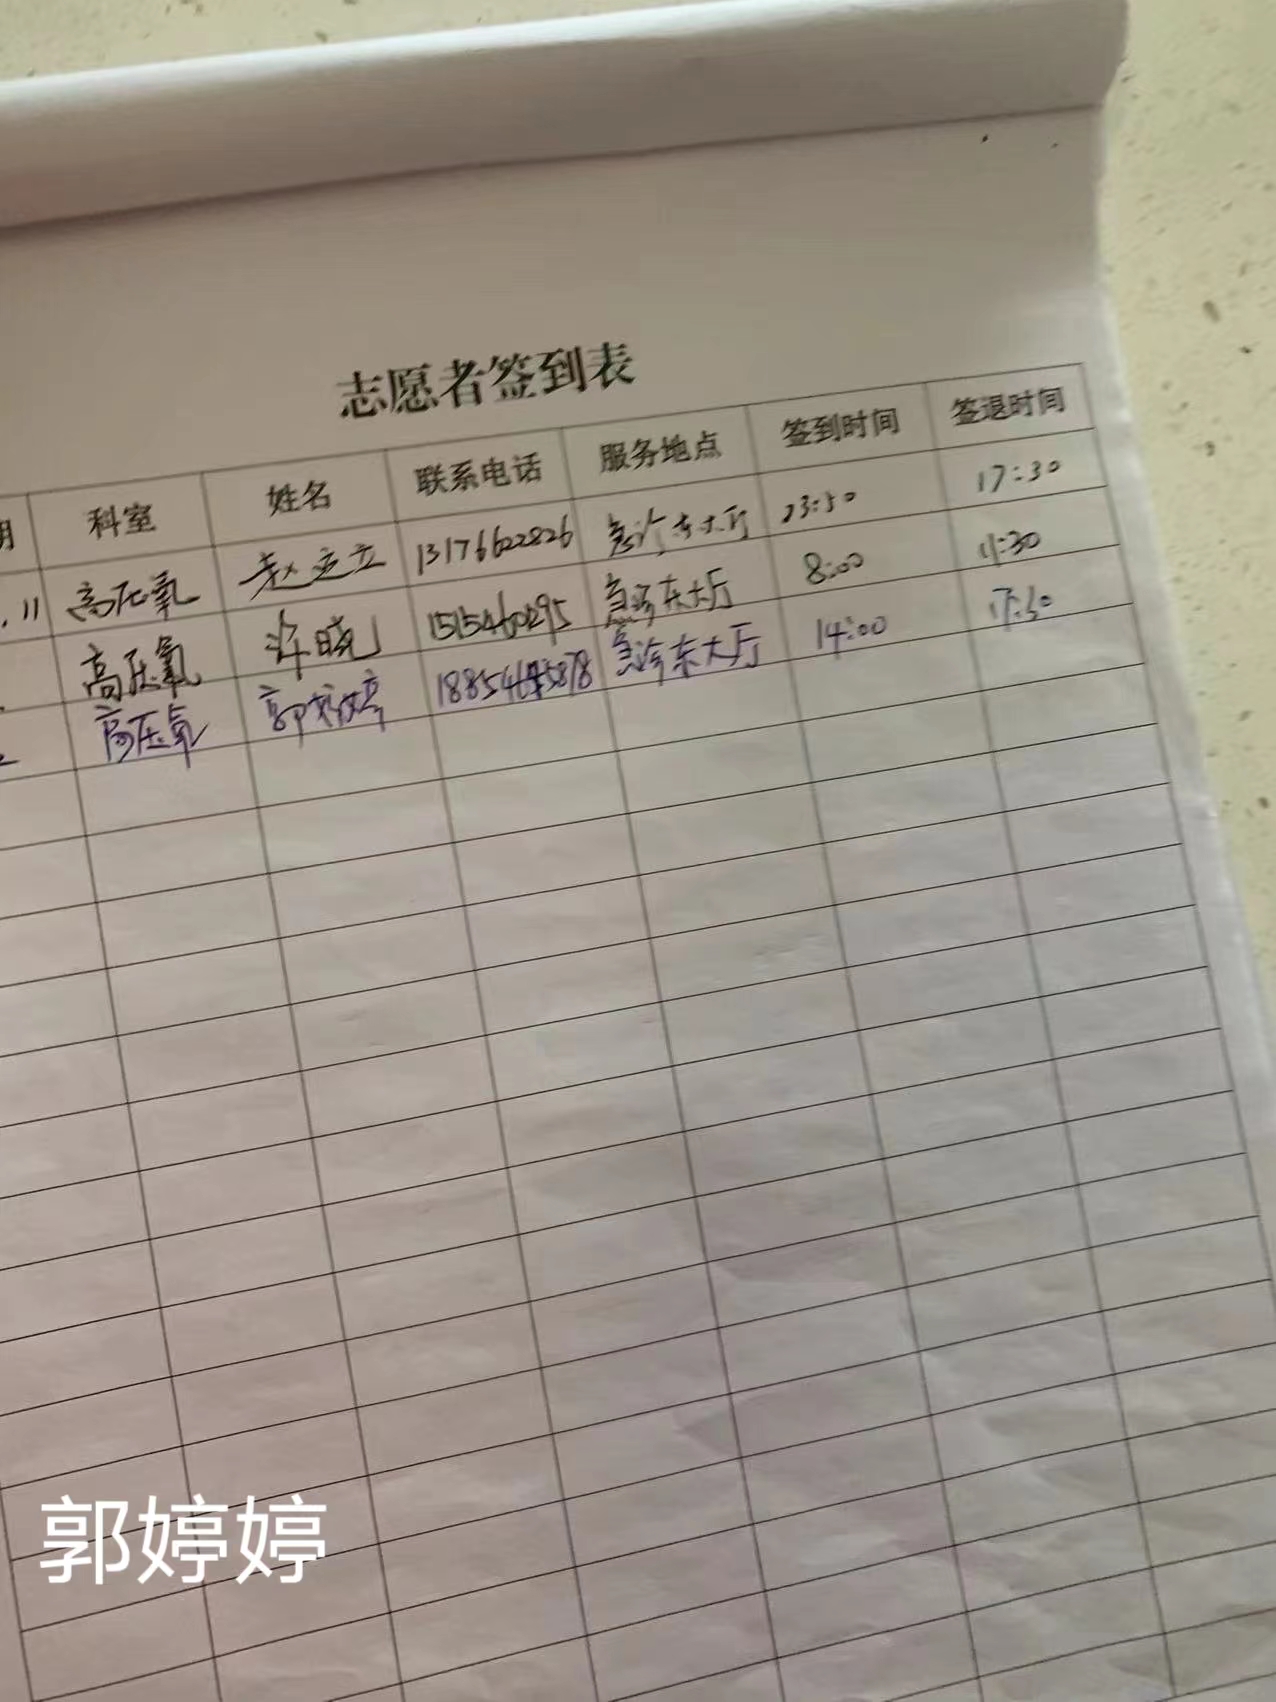 志愿者签到表
期 科室 姓名 联系电话 服务地点 签到时间 签退时间
.11 高压氧 赵立立 13176622826 急诊东大厅 13:50 17:30
高压氧 许晓 急诊东大厅 8:00 11:30
高压氧 郭婷婷 急诊东大厅 14:00 17:30
郭婷婷